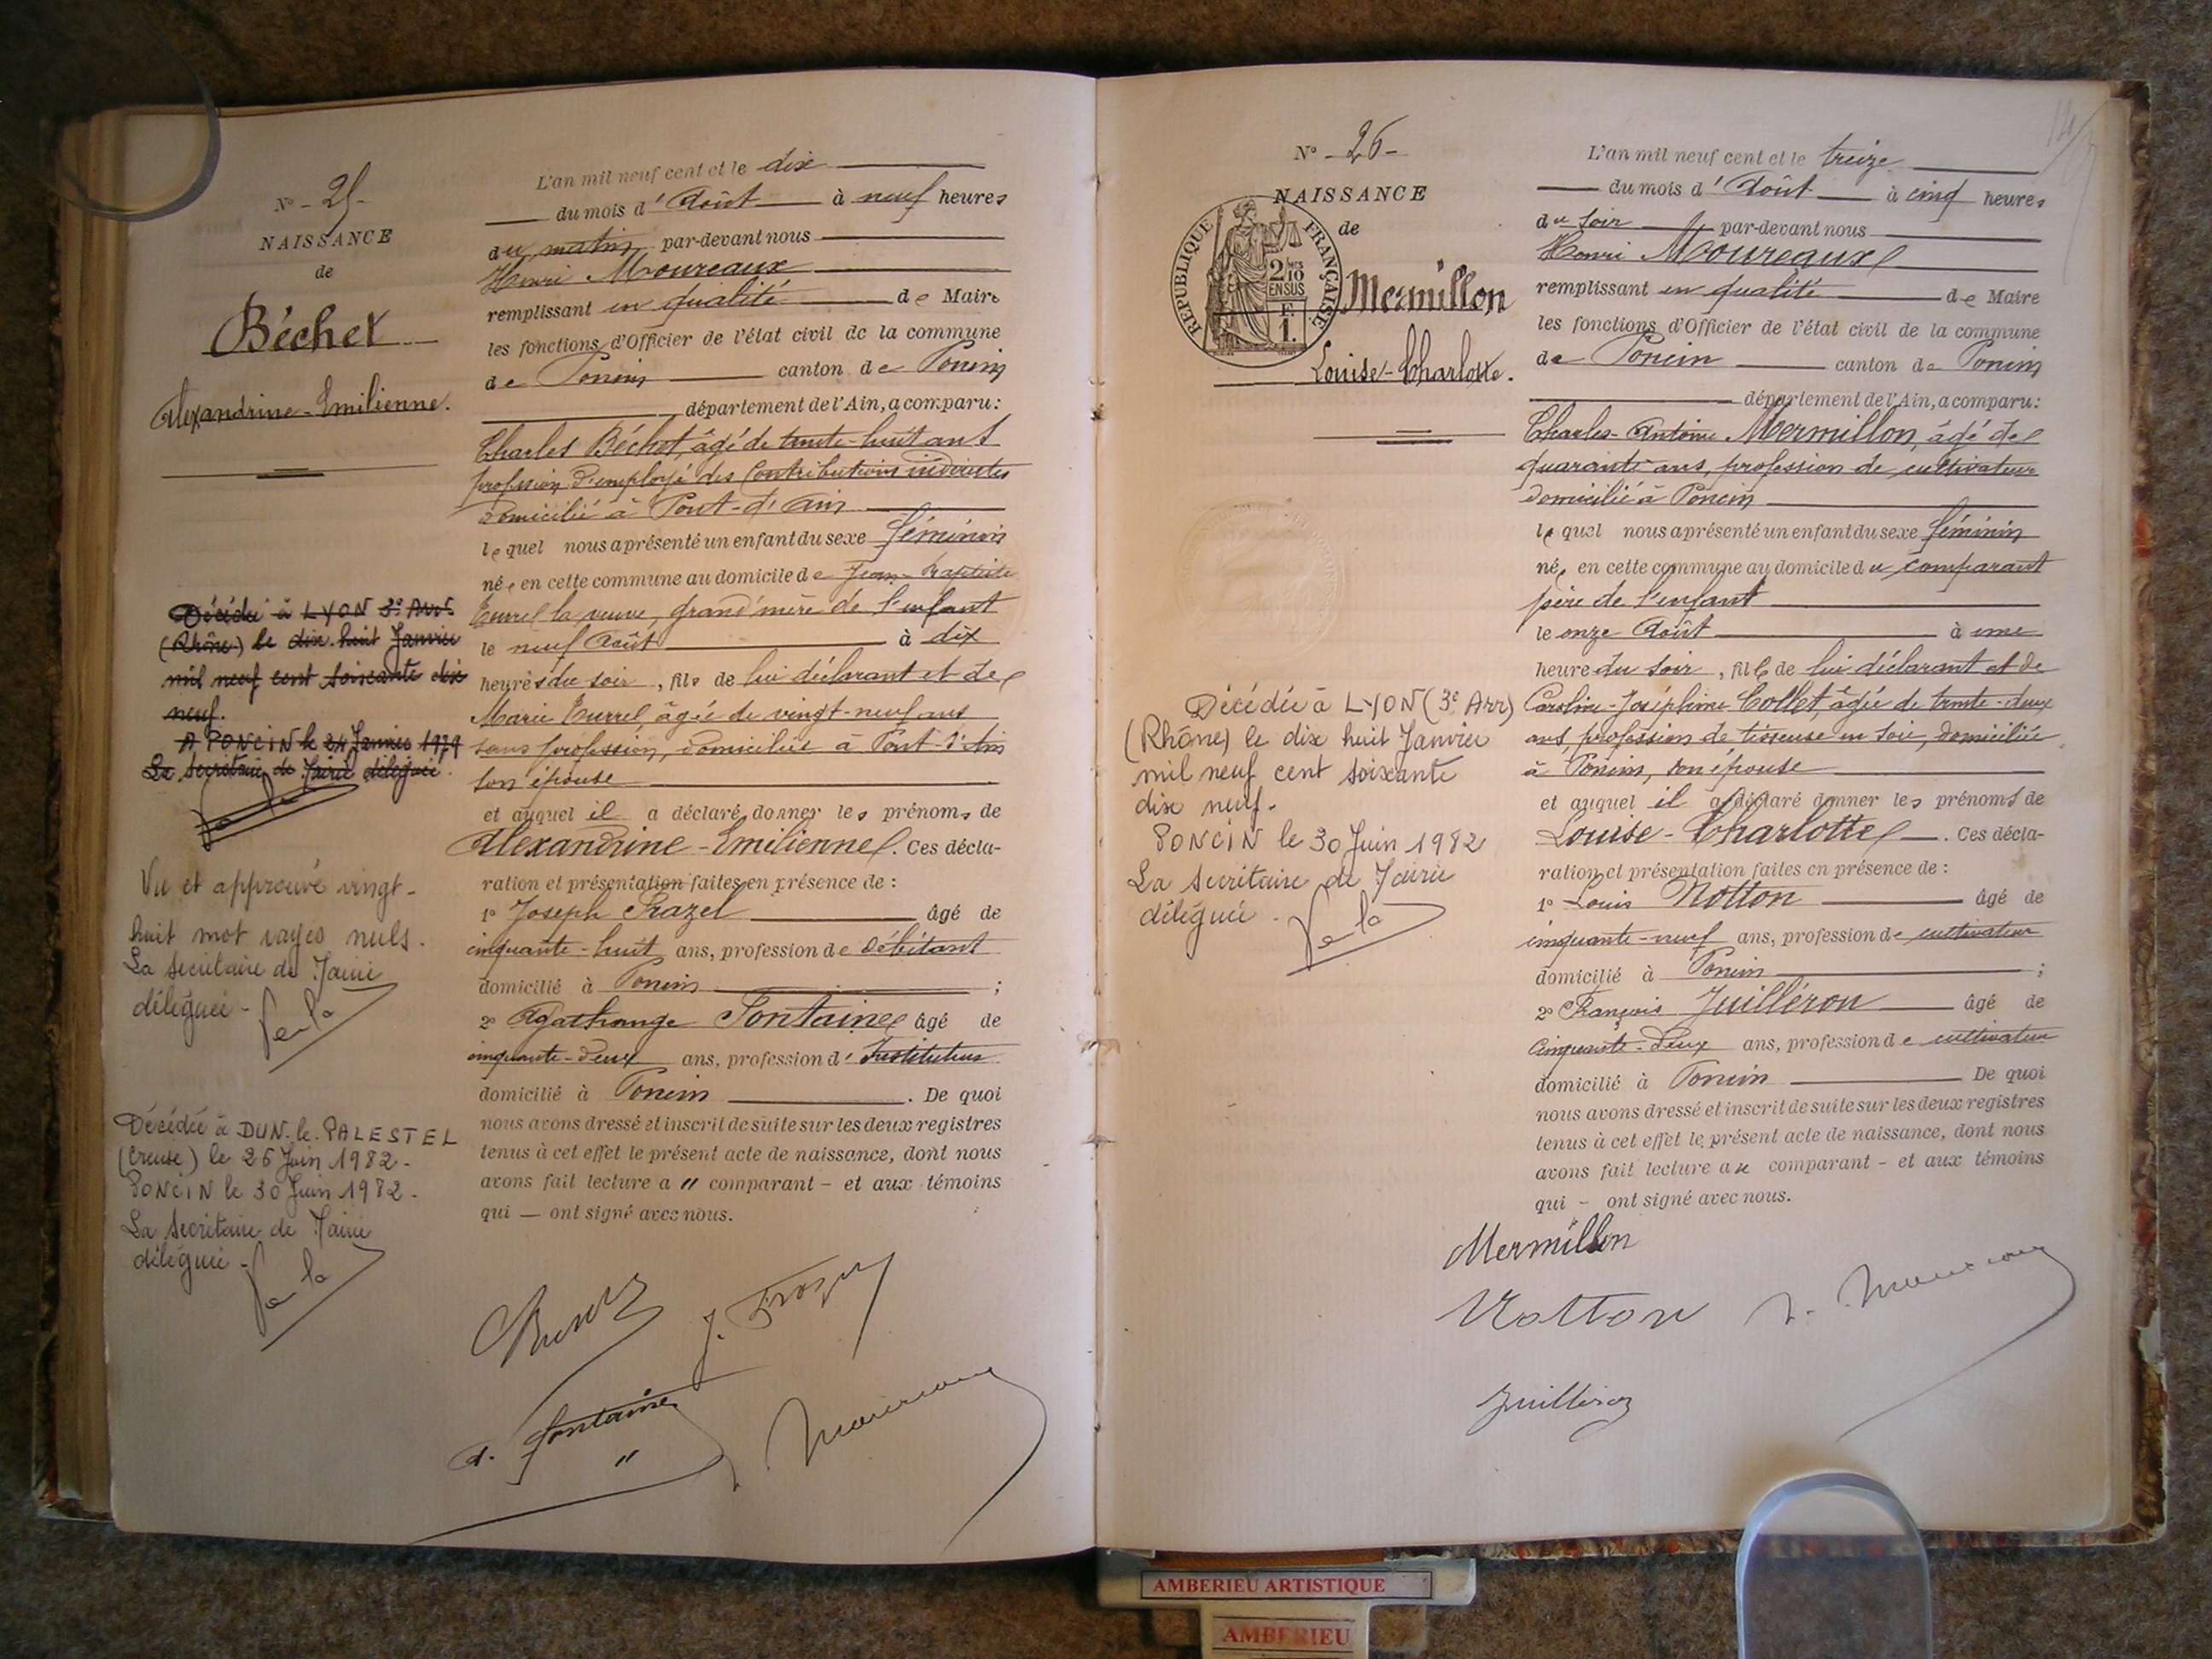 N° - 25 -
NAISSANCE
de
Béchet
Alexandrine-Emilienne.
Décédée à LYON 3e Arr.
(Rhône) le dix huit Janvier
mil neuf cent soixante dix
neuf.
A PONCIN le 24 Janvier 1979
La Secrétaire de Mairie déléguée.
Vu et approuvé vingt-
huit mot rayés nuls.
La Secrétaire de Mairie
déléguée -
Décédée à DUN-le-PALESTEL
(Creuse) le 26 Juin 1982 -
PONCIN le 30 Juin 1982 -
La Secrétaire de Mairie
déléguée -
L'an mil neuf cent et le dix
du mois d'Août à neuf heures
du matin par-devant nous
Henri Moureaux
remplissant en qualité de Maire
les fonctions d'Officier de l'état civil de la commune
de Poncin canton de Poncin
département de l'Ain, a comparu:
Charles Béchet, âgé de trente-huit ans
profession d'employé des Contributions indirectes
domicilié à Pont-d'Ain
lequel nous a présenté un enfant du sexe féminin
née en cette commune au domicile de Jean-Baptiste
la veuve, grand'mère de l'enfant
le neuf Août à dix
heures du soir, fils de lui déclarant et de
Marie âgée de vingt-neuf ans
sans profession, domiciliée à Pont-d'Ain
son épouse
et auquel il a déclaré donner les prénoms de
Alexandrine-Emilienne. Ces décla-
ration et présentation faites en présence de :
1° Joseph âgé de
cinquante-huit ans, profession de débitant
domicilié à Poncin ;
2° Agathange Fontaine âgé de
cinquante-deux ans, profession d'Instituteur
domicilié à Poncin . De quoi
nous avons dressé et inscrit de suite sur les deux registres
tenus à cet effet le présent acte de naissance, dont nous
avons fait lecture a " comparant - et aux témoins
qui — ont signé avec nous.
A. Fontaine
N° - 26 -
NAISSANCE
de
RÉPUBLIQUE FRANÇAISE
2/10 EN SUS
F.
1.
Mermillon
Louise-Charlotte.
Décédée à LYON (3e Arr)
(Rhône) le dix huit Janvier
mil neuf cent soixante
dix neuf.
PONCIN le 30 Juin 1982
La Secrétaire de Mairie
déléguée -
L'an mil neuf cent et le treize
du mois d'Août à cinq heures
du soir par-devant nous
Henri Moureaux
remplissant en qualité de Maire
les fonctions d'Officier de l'état civil de la commune
de Poncin canton de Poncin
département de l'Ain, a comparu:
Charles-Antoine Mermillon, âgé de
quarante ans, profession de cultivateur
domicilié à Poncin
lequel nous a présenté un enfant du sexe féminin
née en cette commune au domicile du comparant
père de l'enfant
le onze Août à une
heure du soir, fille de lui déclarant et de
Caroline-Joséphine Collet, âgée de trente-deux
ans, profession de tisseuse en soie, domiciliée
à Poncin, son épouse
et auquel il a déclaré donner les prénoms de
Louise-Charlotte . Ces décla-
ration et présentation faites en présence de :
1° Louis Notton âgé de
cinquante-neuf ans, profession de cultivateur
domicilié à Poncin ;
2° François Juilléron âgé de
cinquante-deux ans, profession de cultivateur
domicilié à Poncin De quoi
nous avons dressé et inscrit de suite sur les deux registres
tenus à cet effet le présent acte de naissance, dont nous
avons fait lecture au comparant - et aux témoins
qui - ont signé avec nous.
Mermillon
Notton
Juilléron
AMBERIEU ARTISTIQUE
AMBERIEU